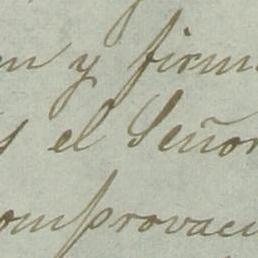 en y firm
s el Señor
omprovaci